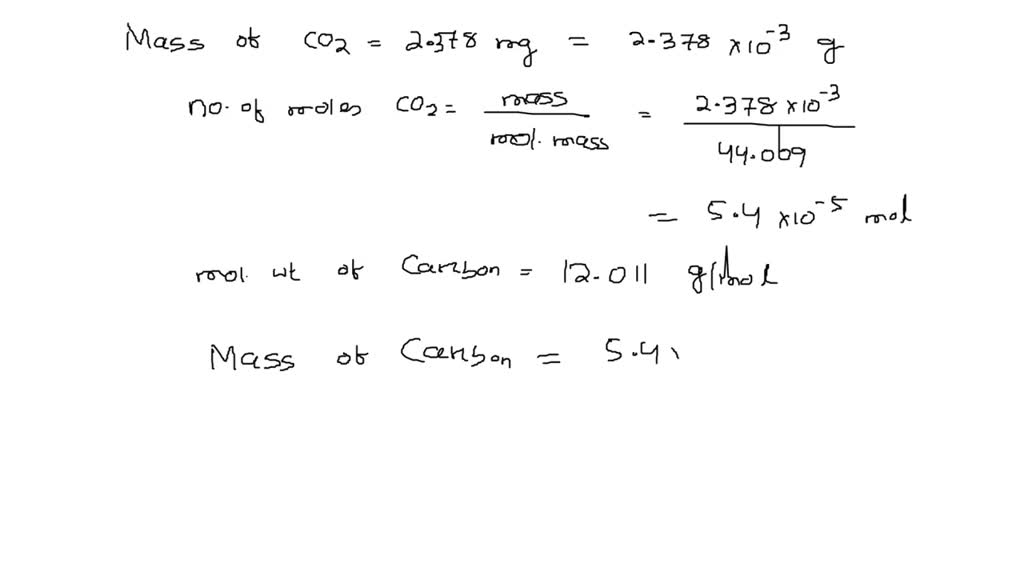 Mass of CO2 = 2.378 mg = 2.378 ×10⁻³ g
no. of moles CO2 = mass / mol. mass = 2.378 ×10⁻³ / 44.009
= 5.4 ×10⁻⁵ mol
mol. wt of Carbon = 12.011 g/mol
Mass of Carbon = 5.4